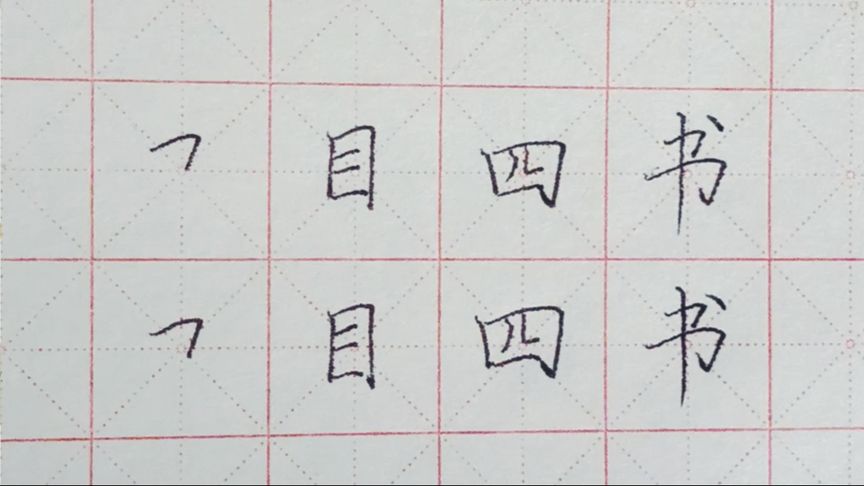 ㇕目四书
㇕目四书